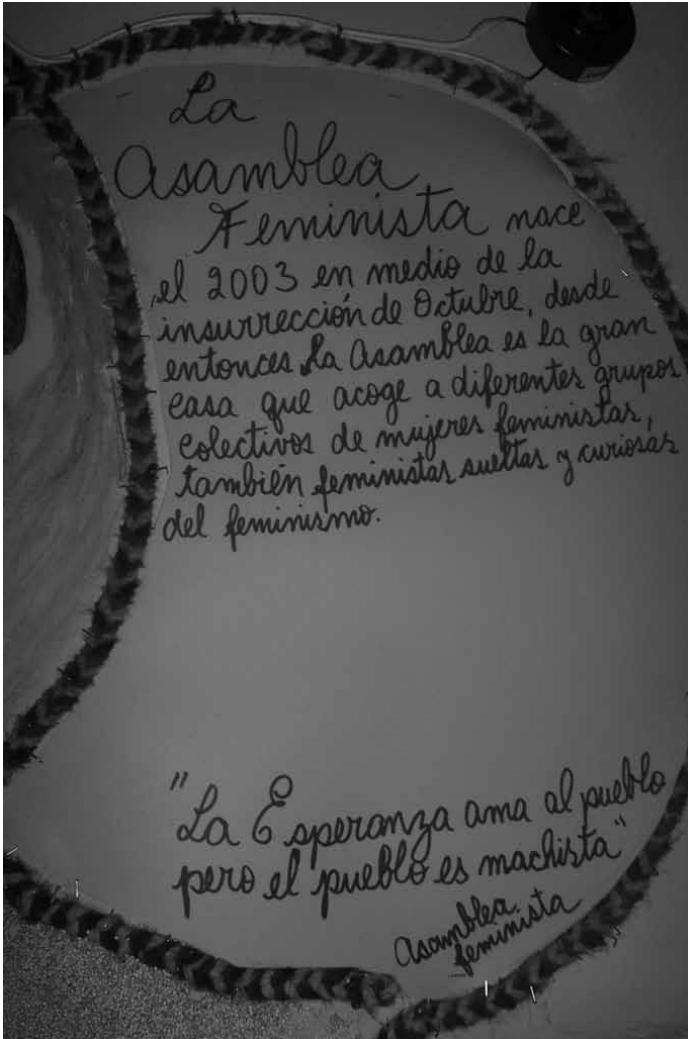 La
Asamblea
Feminista nace
el 2003 en medio de la
insurrección de Octubre, desde
entonces la Asamblea es la gran
casa que acoge a diferentes grupos
colectivos de mujeres feministas,
también feministas sueltas y curiosas
del feminismo.
"La Esperanza ama al pueblo
pero el pueblo es machista"
Asamblea
feminista